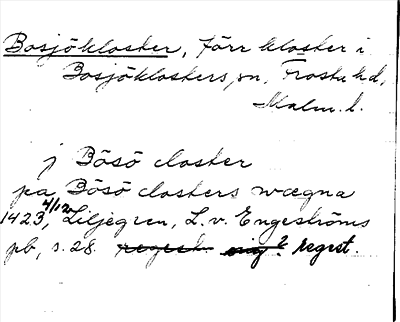 Bosjökloster, förr kloster i
Bosjöklosters sn, Frosta hd,
Malm. l.
j Bösö closter
pa Bösö closters wægna
1423 4/12, Liljegren, L. v. Engeströms
pb, s. 28. regest. orig? regest.